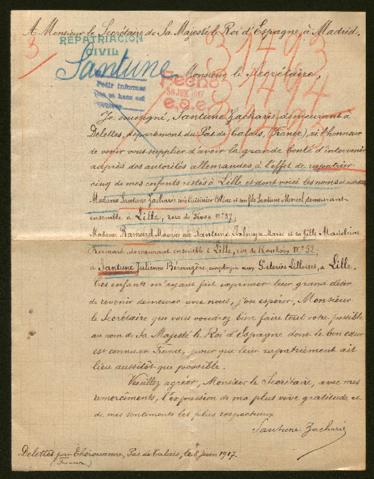 A Monsieur le Secrétaire de Sa Majesté le Roi d'Espagne, à Madrid.
3
REPATRIACION
CIVIL
Santune
31493
31494
Monsieur le Secrétaire,
Pedir informes
Fecho
Je soussigné, Santune Zacharie demeurant à
Delettes, département du Pas de Calais, (France), ai l'honneur
de venir vous supplier d'avoir la grande bonté d'intervenir
auprès des autorités allemandes à l'effet de rapatrier
cinq de mes enfants restés à Lille et dont voici les noms:
Madame Santune Zacharie née et son fils Santune Marcel demeurant
ensemble à Lille, rue de N° 37,
Madame Ramond Maurice née Santune et sa fille Madeleine
Ramond demeurant ensemble à Lille, rue de N° 52
à Santune Julienne Bérangère employée aux Galeries Lilloises, à Lille.
Ces enfants m'ayant fait exprimer leur grand désir
de revenir demeurer avec nous, j'ose espérer, Monsieur
le Secrétaire que vous voudrez bien faire tout votre possible
au nom de Sa Majesté le Roi d'Espagne dont le bon cœur
est connu en France, pour que leur rapatriement ait
lieu aussitôt que possible.
Veuillez agréer, Monsieur le Secrétaire, avec mes
remerciements, l'expression de ma plus vive gratitude et
de mes sentiments les plus respectueux
Santune Zacharie
Delettes par Thérouanne, Pas de Calais, le juin 1917.
(France)